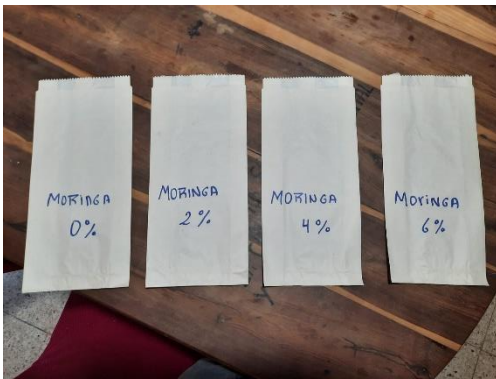 MORINGA
0%
MORINGA
2%
MORINGA
4%
MORINGA
6%